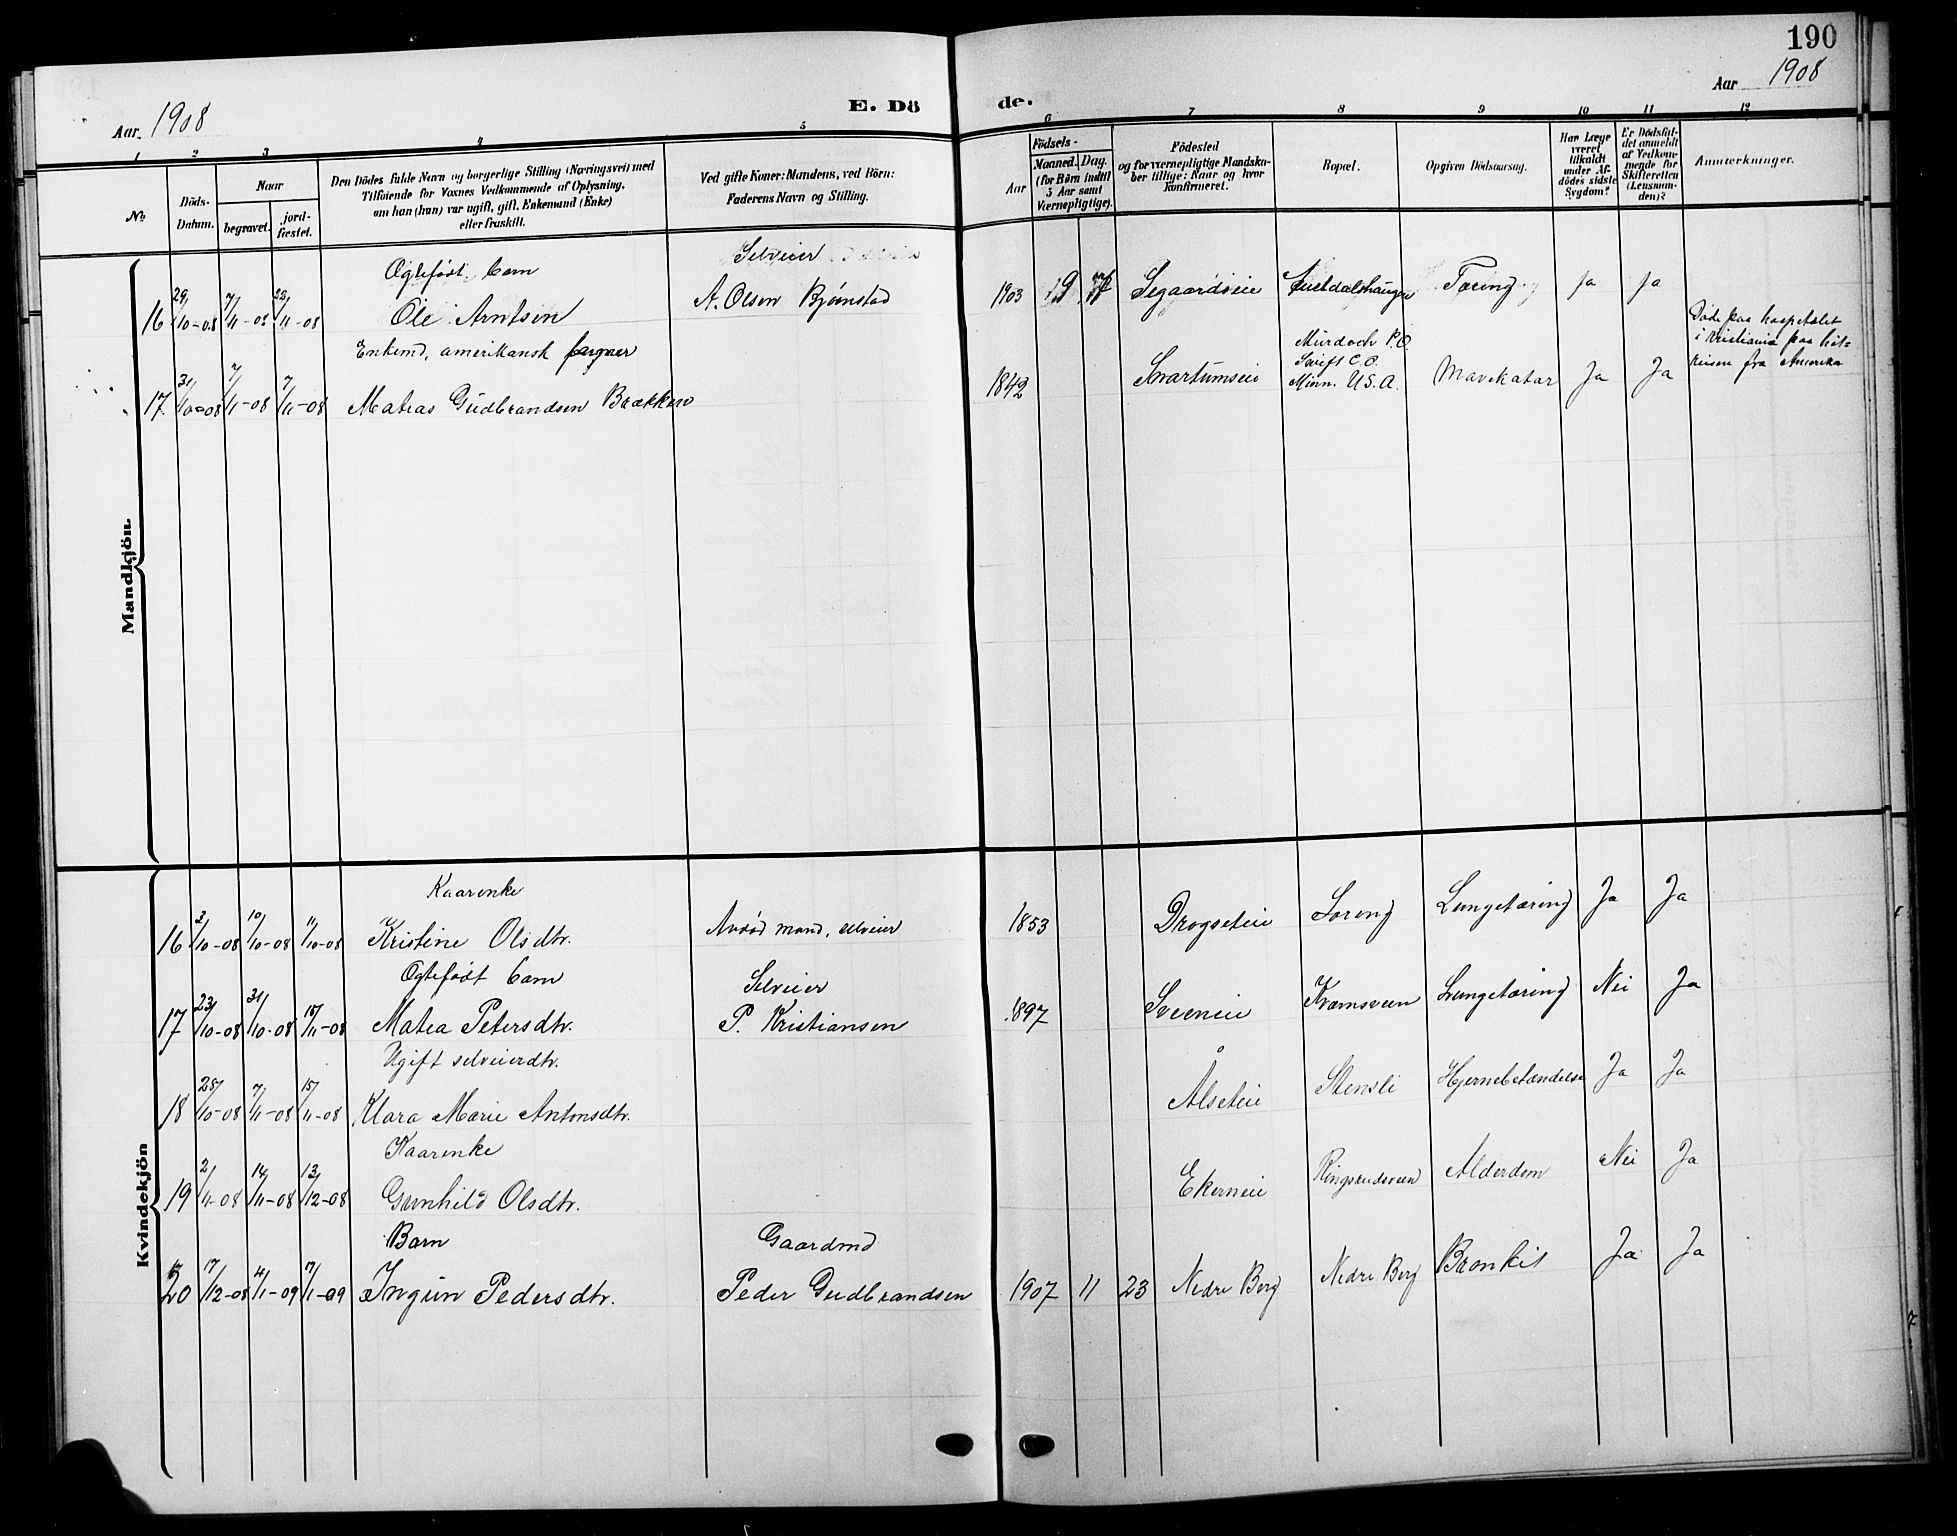 190
Aar 1908
E. Dö de.
Aar 1908
1 2 3 4 5 6 7 8 9 10 11 12
No
Döds-Datum.
Naar
begravet.
jord-fæstet.
Den Dödes fulde Navn og borgerlige Stilling (Næringsvei) med
Tilföiende for Voxnes Vedkommende af Oplysning,
om han (hun) var ugift, gift, Enkemand (Enke)
eller fraskilt.
Ved gifte Koner: Mandens, ved Börn:
Faderens Navn og Stilling.
Födsels-
Aar
Maaned. Dag.
(for Börn indtil
5 Aar samt
Værnepligtige).
Födested
og for værnepligtige Mandska-
ber tillige: Naar og hvor
konfirmeret.
Bopæl.
Opgiven Dödsaarsag.
Har Læge
været
tilkaldt
under Af-
dödes sidste
Sygdom?
Er Dödsfal-
det anmeldt
af Vedkom-
mende for
Skifteretten
(Lensman-
den)?
Anmærkninger.
Mandkjön.
Ogtefødt barn Selveier
16 29/10-08 7/11-08 22/11-08 Ole Arntsen A. Olsen Bjørnstad 1903 Segaardseie Tæring ja ja
Enkemd, amerikansk farmer
17. 31/10-08 7/11-08 7/11-08 Matias Gudbrandsen Brækken 1842 Svartumseie Murdoch P.O.
Swift C.O.
Minn. U.S.A. Mavekatar Ja Ja
Døde paa hospitalet
i Kristiania paa hit-
reisen fra Amerika
Kvindekjön
Kaarenke
16 3/10-08 10/10-08 11/10-08 Kristine Olsdtr. Avdød mand, selveier 1853 Drogseteie Soreng Lungetæring Ja Ja
Ogtefødt barn Selveier
17 23/10-08 31/10-08 15/11-08 Matea Petersdtr. P. Kristiansen 1897 Sveeneie Kvamsveen Lungetæring Nei Ja
Ugift selveierdtr.
18 28/10-08 7/11-08 15/11-08 Klara Marie Antonsdtr. Ålseteie Stensli Hjernebetændelse Ja Ja
Kaarenke
19 2/11-08 14/11-08 13/12-08 Gunhild Olsdtr. Ekerneie Ringsrudsveen Alderdom Nei Ja
Barn Gaardmd
20 17/12-08 4/1-09 17/1-09 Ingun Pedersdtr. Peder Gudbrandsen 1907 11 23 Nedre Berg Nedre Berg Bronkit Ja Ja